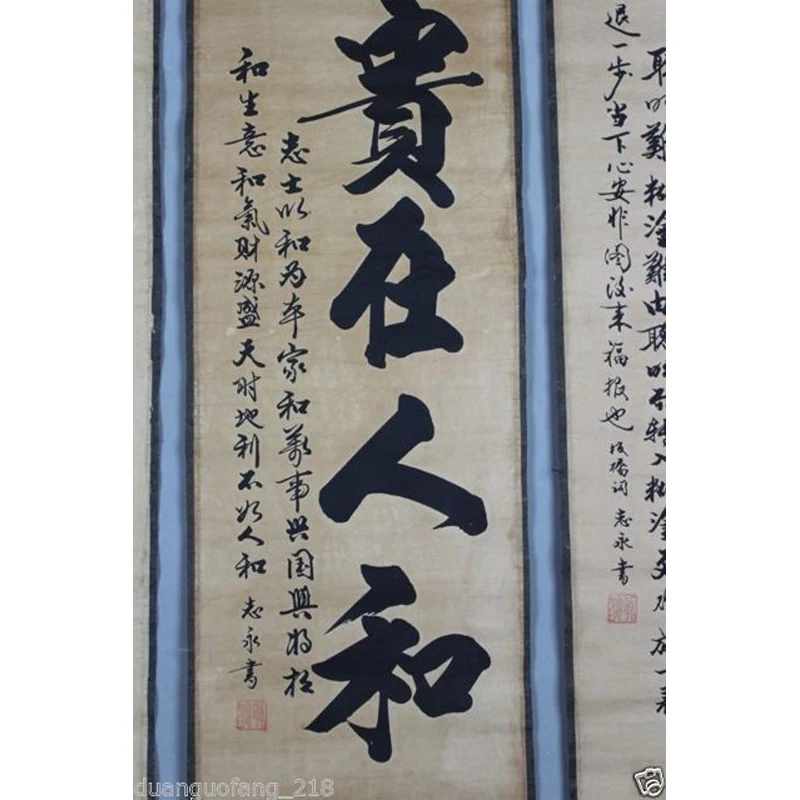 聰明難糊塗難由聰明而轉入糊塗更難放一着
退一步当下心安非图後来福报也 板橋词 志永書
貴在人和
志士以和为本家和萬事兴国興将相
和生意和氣財源盛天时地利不如人和 志永書
duanguofang_218